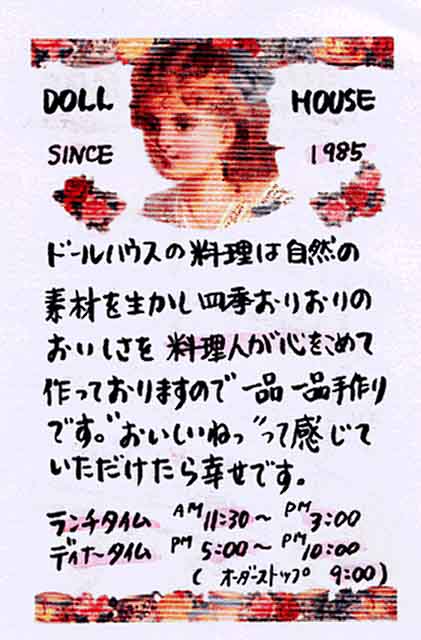 DOLL HOUSE
SINCE 1985
ドールハウスの料理は自然の
素材を生かし四季おりおりの
おいしさを料理人が心をこめて
作っておりますので一品一品手作り
です。"おいしいねっ"って感じて
いただけたら幸せです。
ランチタイム AM 11:30〜 PM 3:00
ディナータイム PM 5:00〜 PM 10:00
(オーダーストップ 9:00)